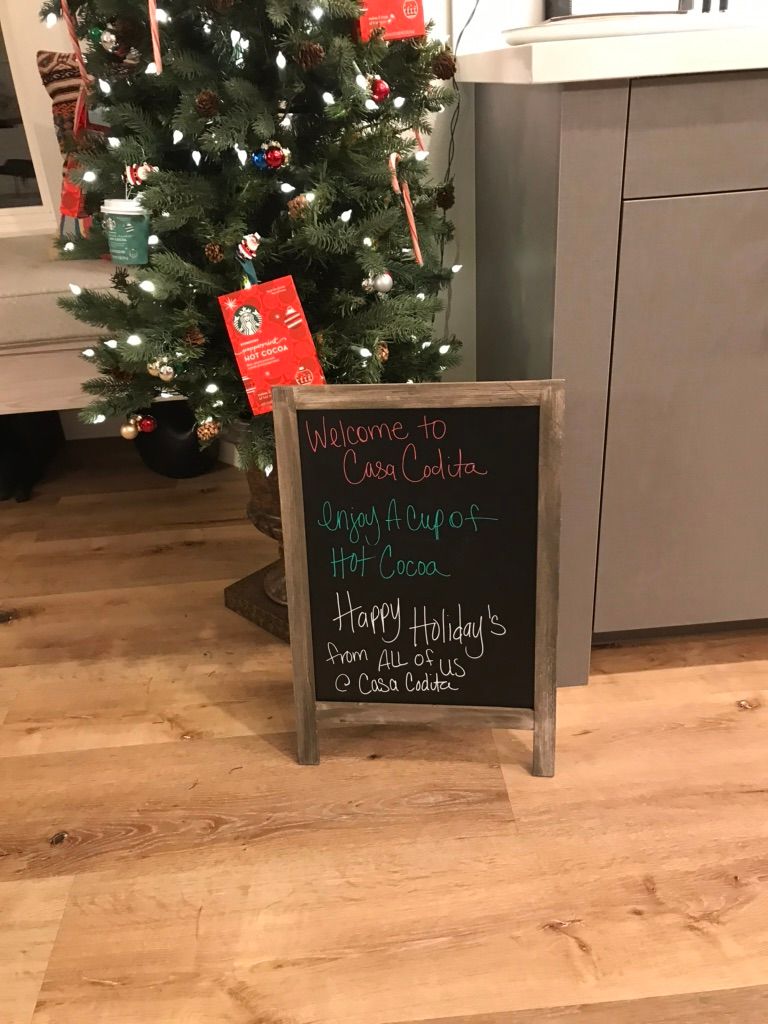 peppermint
HOT COCOA
Welcome to
Casa Codita
enjoy A Cup of
Hot Cocoa
Happy Holiday's
from ALL of us
@ Casa Codita